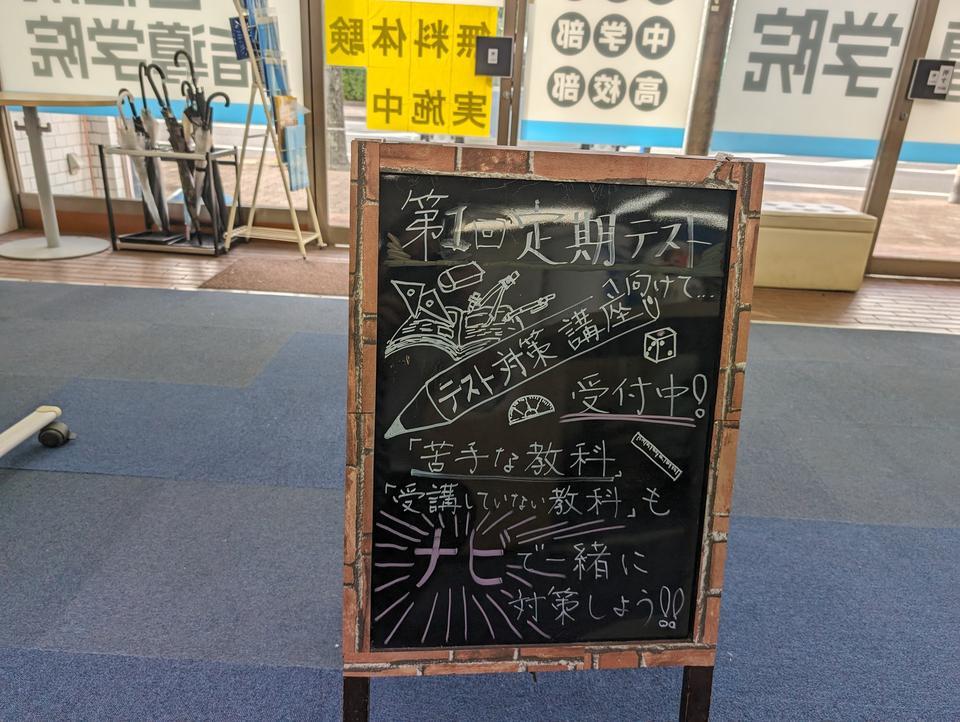 無料体験
実施中
中学部
高校部
指導学院
学院
第1回定期テスト
に向けて…
テスト対策講座
受付中!
「苦手な教科」
「受講していない教科」も
ナビで一緒に
対策しよう!!